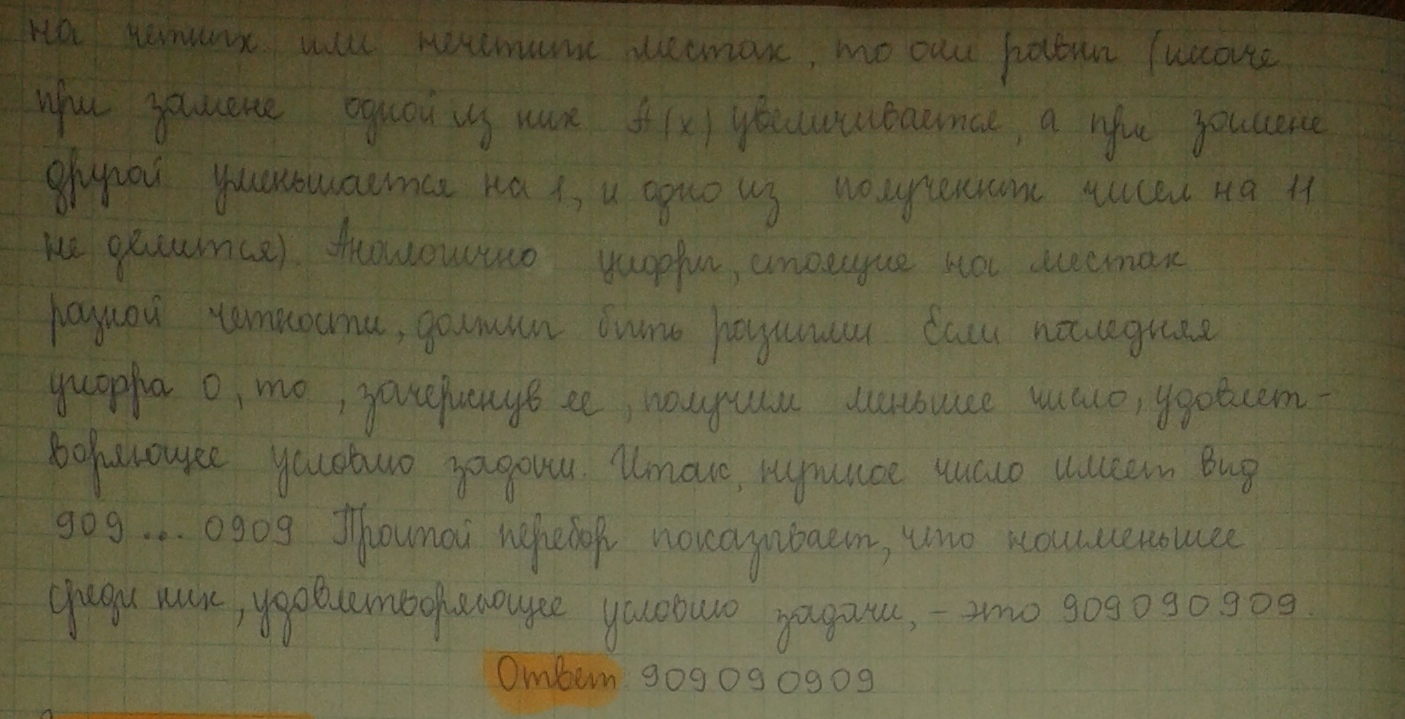 на четных или нечетных местах, то они равны (иначе
при замене одной из них A(x) увеличивается, а при замене
другой уменьшается на 1, и одно из полученных чисел на 11
не делится). Аналогично цифры, стоящие на местах
разной четности, должны быть разными. Если последняя
цифра 0, то, зачеркнув ее, получим меньшее число, удовлет-
воряющее условию задачи. Итак, нужное число имеет вид
909...0909 Простой перебор показывает, что наименьшее
среди них, удовлетворяющее условию задачи, - это 909090909.
Ответ 909090909